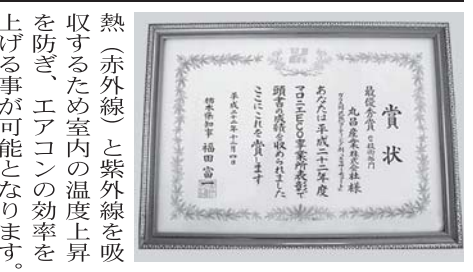 賞状
最優秀賞
丸昌産業株式会社様
あなたは平成二十二年度
マロニエECO事業所表彰で
頭書の成績を収められました
ここにこれを賞します
平成二十二年十二月四日
栃木県知事 福田富一
熱（赤外線）と紫外線を吸
収するため室内の温度上昇
を防ぎ、エアコンの効率を
上げる事が可能となります。